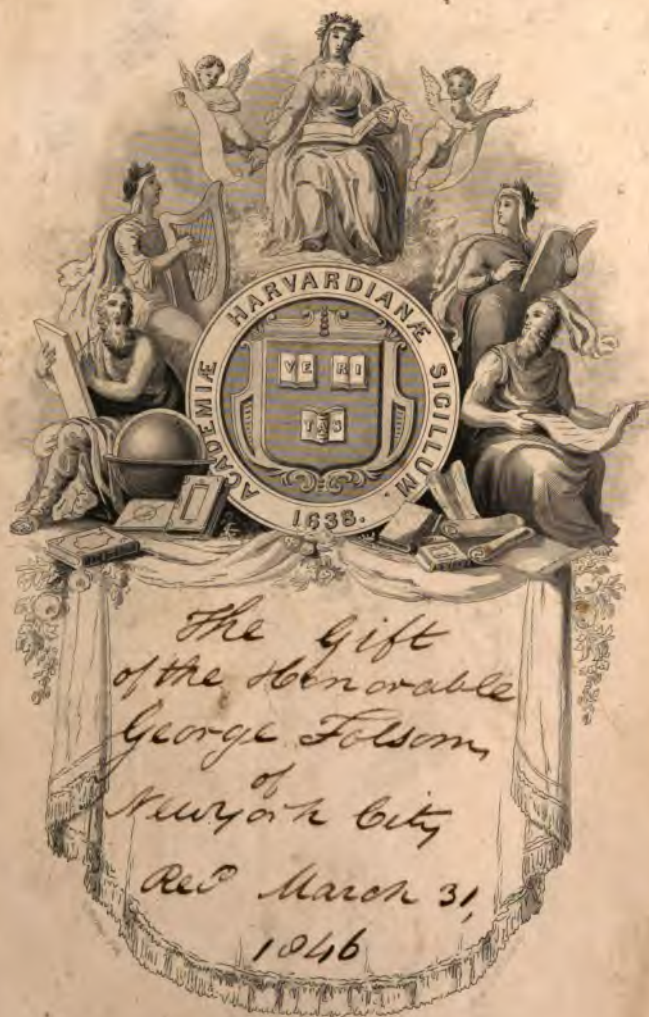 ACADEMIÆ HARVARDIANÆ SIGILLUM.
VE RI
TAS
1638.
The Gift
of the Honorable
George Folsom,
of
New York City
Rec'd March 31,
1846